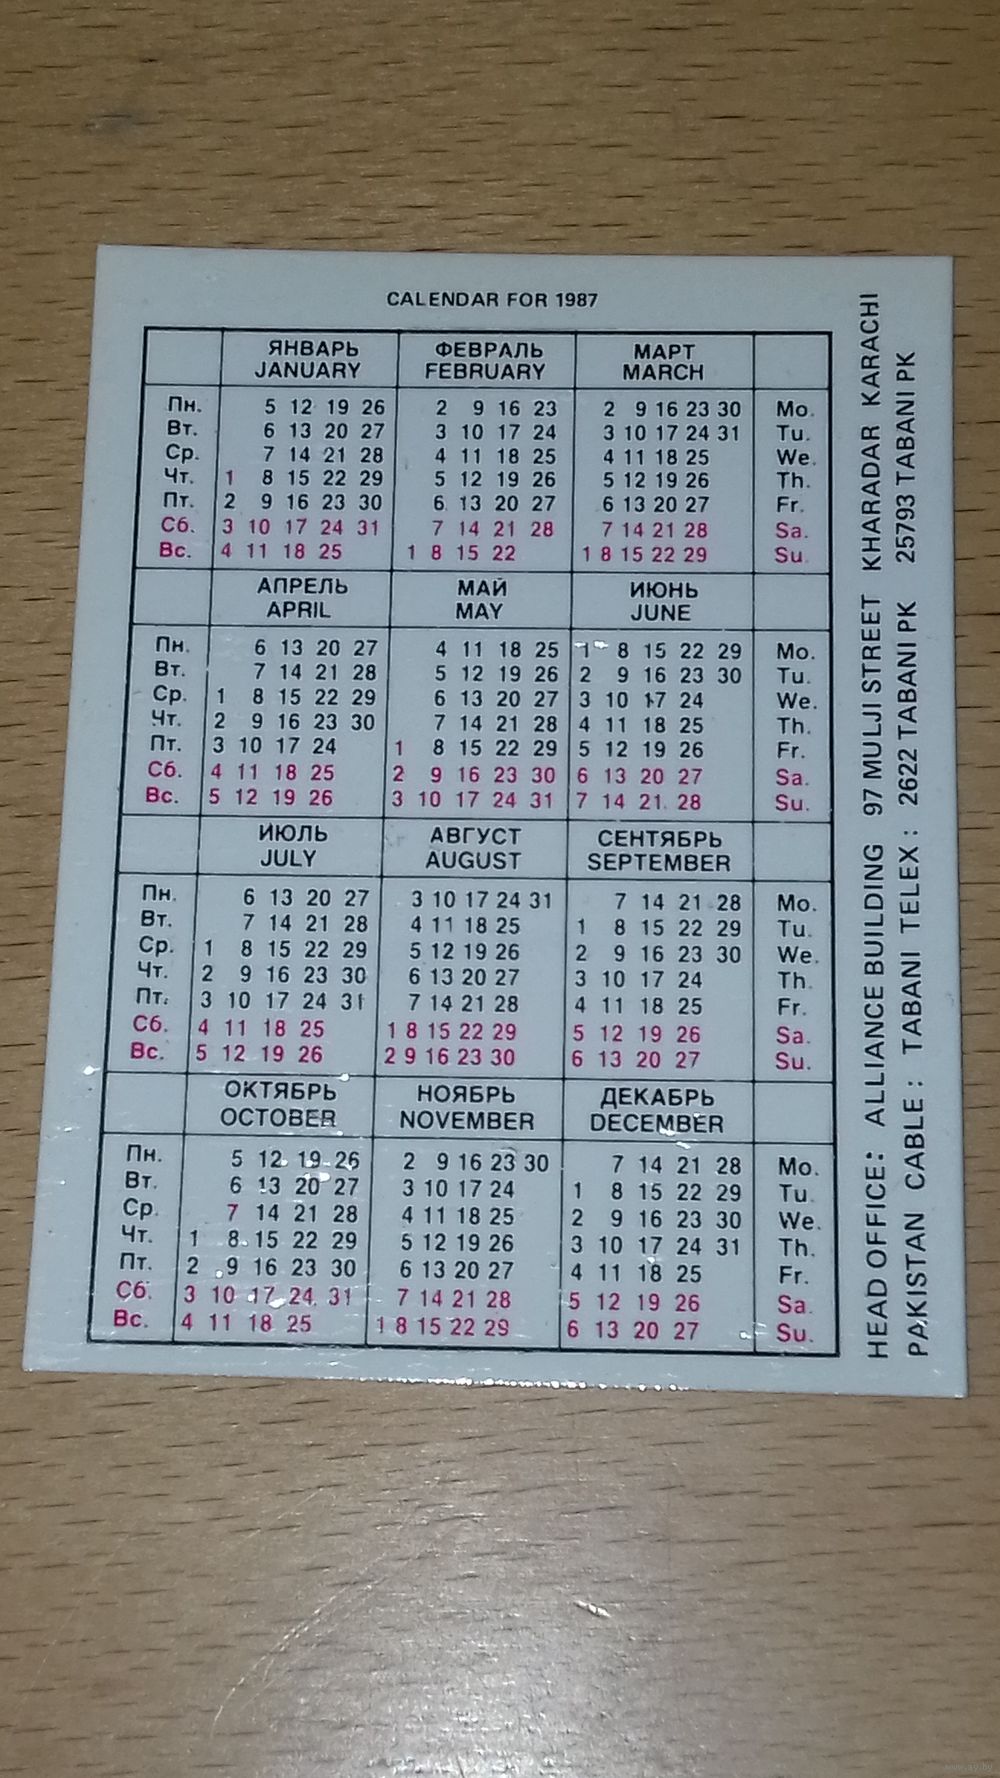 CALENDAR FOR 1987
ЯНВАРЬ ФЕВРАЛЬ МАРТ
JANUARY FEBRUARY MARCH
Пн. 5 12 19 26 2 9 16 23 2 9 16 23 30 Mo.
Вт. 6 13 20 27 3 10 17 24 3 10 17 24 31 Tu.
Ср. 7 14 21 28 4 11 18 25 4 11 18 25 We.
Чт. 1 8 15 22 29 5 12 19 26 5 12 19 26 Th.
Пт. 2 9 16 23 30 6 13 20 27 6 13 20 27 Fr.
Сб. 3 10 17 24 31 7 14 21 28 7 14 21 28 Sa.
Вс. 4 11 18 25 1 8 15 22 1 8 15 22 29 Su.
АПРЕЛЬ МАЙ ИЮНЬ
APRIL MAY JUNE
Пн. 6 13 20 27 4 11 18 25 1 8 15 22 29 Mo.
Вт. 7 14 21 28 5 12 19 26 2 9 16 23 30 Tu.
Ср. 1 8 15 22 29 6 13 20 27 3 10 17 24 We.
Чт. 2 9 16 23 30 7 14 21 28 4 11 18 25 Th.
Пт. 3 10 17 24 1 8 15 22 29 5 12 19 26 Fr.
Сб. 4 11 18 25 2 9 16 23 30 6 13 20 27 Sa.
Вс. 5 12 19 26 3 10 17 24 31 7 14 21 28 Su.
ИЮЛЬ АВГУСТ СЕНТЯБРЬ
JULY AUGUST SEPTEMBER
Пн. 6 13 20 27 3 10 17 24 31 7 14 21 28 Mo.
Вт. 7 14 21 28 4 11 18 25 1 8 15 22 29 Tu.
Ср. 1 8 15 22 29 5 12 19 26 2 9 16 23 30 We.
Чт. 2 9 16 23 30 6 13 20 27 3 10 17 24 Th.
Пт. 3 10 17 24 31 7 14 21 28 4 11 18 25 Fr.
Сб. 4 11 18 25 1 8 15 22 29 5 12 19 26 Sa.
Вс. 5 12 19 26 2 9 16 23 30 6 13 20 27 Su.
ОКТЯБРЬ НОЯБРЬ ДЕКАБРЬ
OCTOBER NOVEMBER DECEMBER
Пн. 5 12 19 26 2 9 16 23 30 7 14 21 28 Mo.
Вт. 6 13 20 27 3 10 17 24 1 8 15 22 29 Tu.
Ср. 7 14 21 28 4 11 18 25 2 9 16 23 30 We.
Чт. 1 8 15 22 29 5 12 19 26 3 10 17 24 31 Th.
Пт. 2 9 16 23 30 6 13 20 27 4 11 18 25 Fr.
Сб. 3 10 17 24 31 7 14 21 28 5 12 19 26 Sa.
Вс. 4 11 18 25 1 8 15 22 29 6 13 20 27 Su.
HEAD OFFICE: ALLIANCE BUILDING 97 MULJI STREET KHARADAR KARACHI
PAKISTAN CABLE : TABANI TELEX : 2622 TABANI PK 25793 TABANI PK
www.ay.by